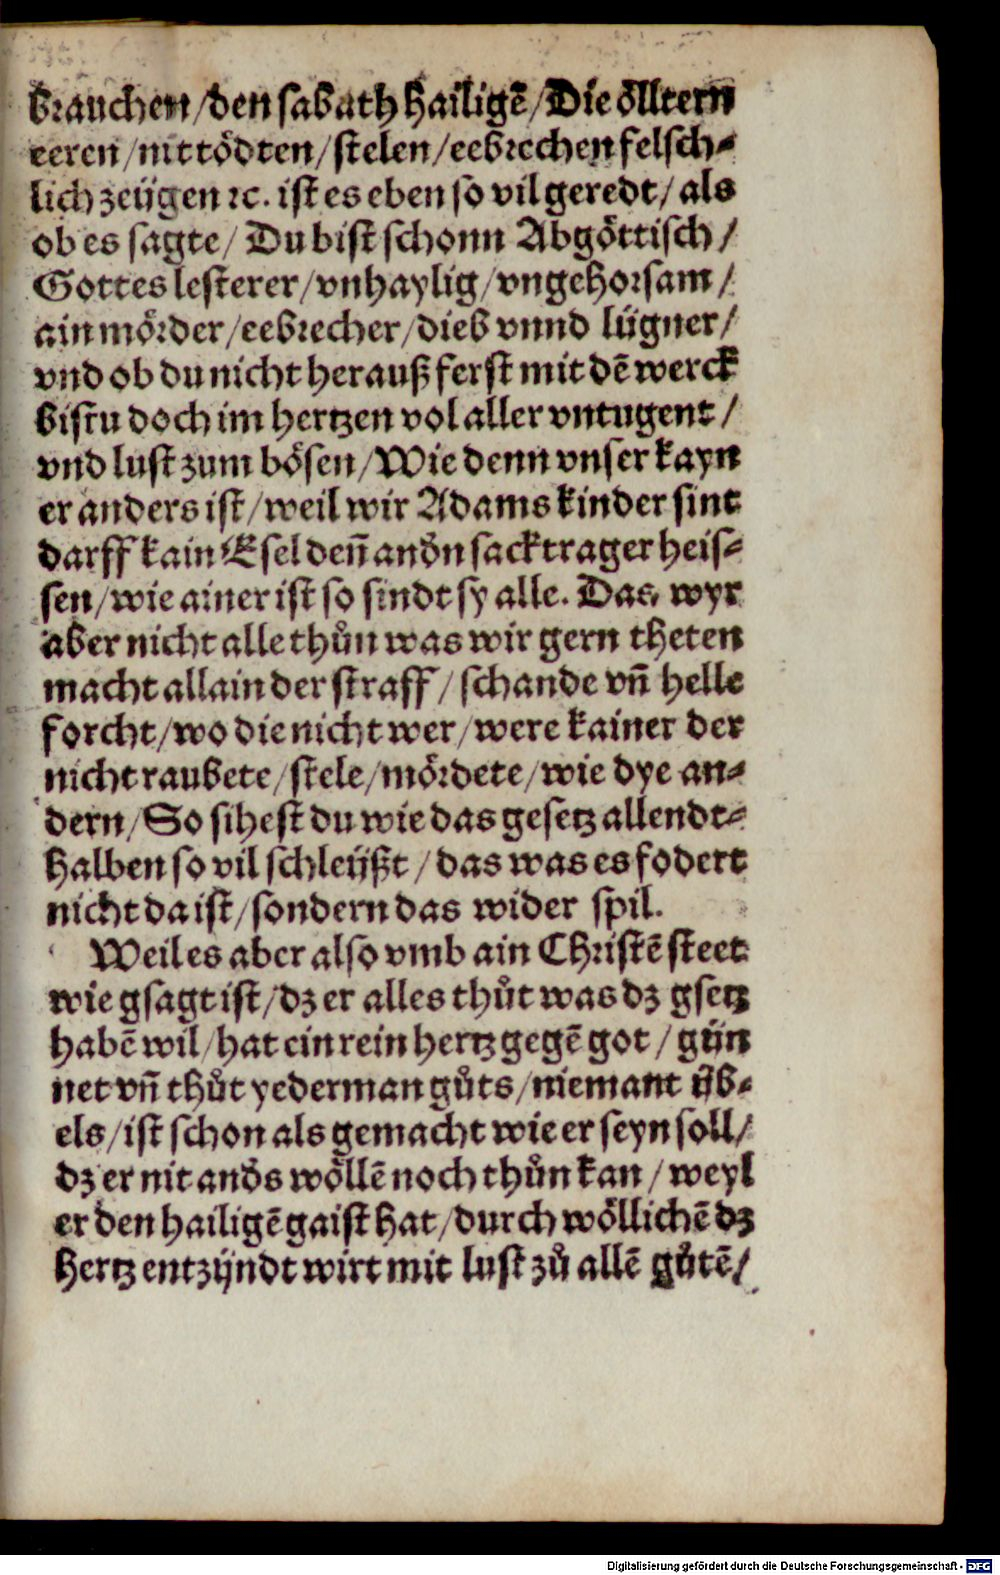 brauchen/den sabath hailigẽ/Die ölltern
eeren/nit tödten/stelen/eebrechen felsch⸗
lich zeügen ꝛc. ist es eben so vil geredt/als
ob es sagte/Du bist schonn Abgöttisch/
Gottes lesterer/vnhaylig/vngehorsam/
ain mörder/eebrecher/dieb vnnd lügner/
vnd ob du nicht herauß ferst mit dẽ werck
bistu doch im hertzen vol aller vntugent/
vnd lust zum bösen/Wie denn vnser kayn
er anders ist/weil wir Adams kinder sint
darff kain Esel deñ andn sacktrager heis⸗
sen/wie ainer ist so sindt sy alle. Das wyr
aber nicht alle thůn was wir gern theten
macht allain der straff/schande vñ helle
forcht/wo die nicht wer/were kainer der
nicht raubete/stele/mördete/wie dye an⸗
dern/So sihest du wie das gesetz allendt⸗
halben so vil schleüßt/das was es fodert
nicht da ist/sondern das wider spil.
Weil es aber also vmb ain Christẽ steet
wie gsagt ist/dz er alles thůt was dz gsetz
habẽ wil/hat ein rein hertz gegẽ got/gün
net vñ thůt yederman gůts/niemant üb⸗
els/ist schon als gemacht wie er seyn soll/
dz er nit ands wöllẽ noch thůn kan/weyl
er den hailigẽ gaist hat/durch wöllichẽ dz
hertz entzündt wirt mit lust zů allẽ gůtẽ/
Digitalisierung gefördert durch die Deutsche Forschungsgemeinschaft - DFG